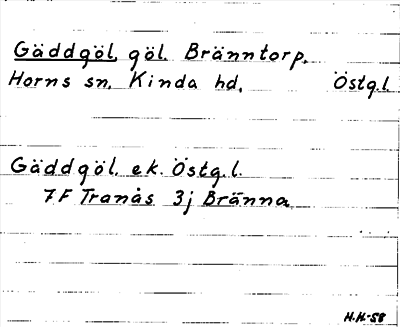 Gäddgöl, göl. Bränntorp.
Horns sn. Kinda hd. Östg.l.
Gäddgöl. ek. Östg.l.
7F Tranås 3j Bränna
H.H.-58